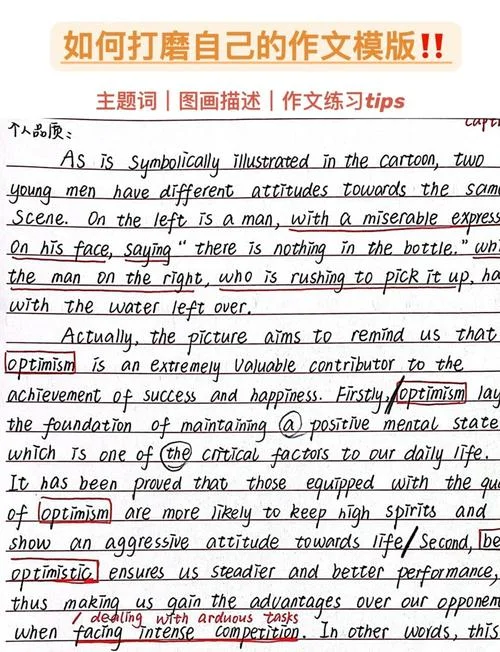 如何打磨自己的作文模版!!
主题词|图画描述|作文练习tips
个人品质:
As is symbolically illustrated in the cartoon, two
young men have different attitudes towards the same
Scene. On the left is a man, with a miserable express
On his face, saying "there is nothing in the bottle." whi
the man on the right, who is rushing to pick it up, ha
with the water left over.
Actually, the picture aims to remind us that
optimism is an extremely valuable contributor to the
achievement of success and happiness. Firstly, optimism lay
the foundation of maintaining a positive mental state
which is one of the critical factors to our daily life.
It has been proved that those equipped with the qua
of optimism are more likely to keep high spirits and
show an aggressive attitude towards life/Second, be
optimistic ensures us steadier and better performance,
thus making us gain the advantages over our opponen
/ dealing with arduous tasks
when facing intense competition. In other words, this